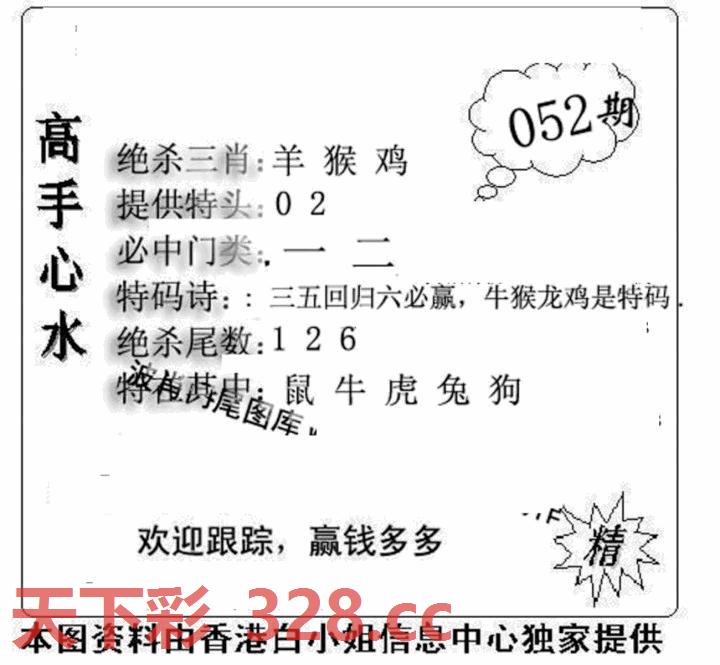 052期
高手心水
绝杀三肖:羊 猴 鸡
提供特头:0 2
必中门类:一 二
特码诗::三五回归六必赢,牛猴龙鸡是特码.
绝杀尾数:1 2 6
特在其中:鼠 牛 虎 兔 狗
尾图库
欢迎跟踪,赢钱多多
精
天下彩 328.cc
本图资料由香港白小姐信息中心独家提供